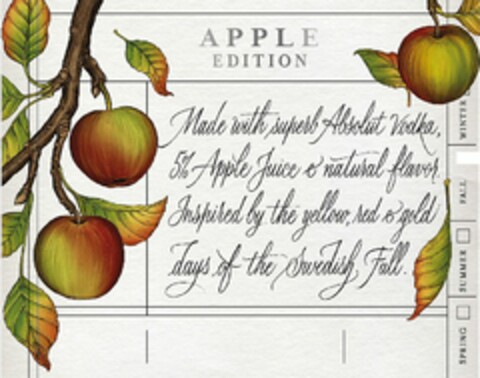 APPLE
EDITION
Made with superb Absolut Vodka,
5% Apple Juice & natural flavor.
Inspired by the yellow, red & gold
days of the Swedish Fall.
WINTER
FALL
SUMMER
SPRING